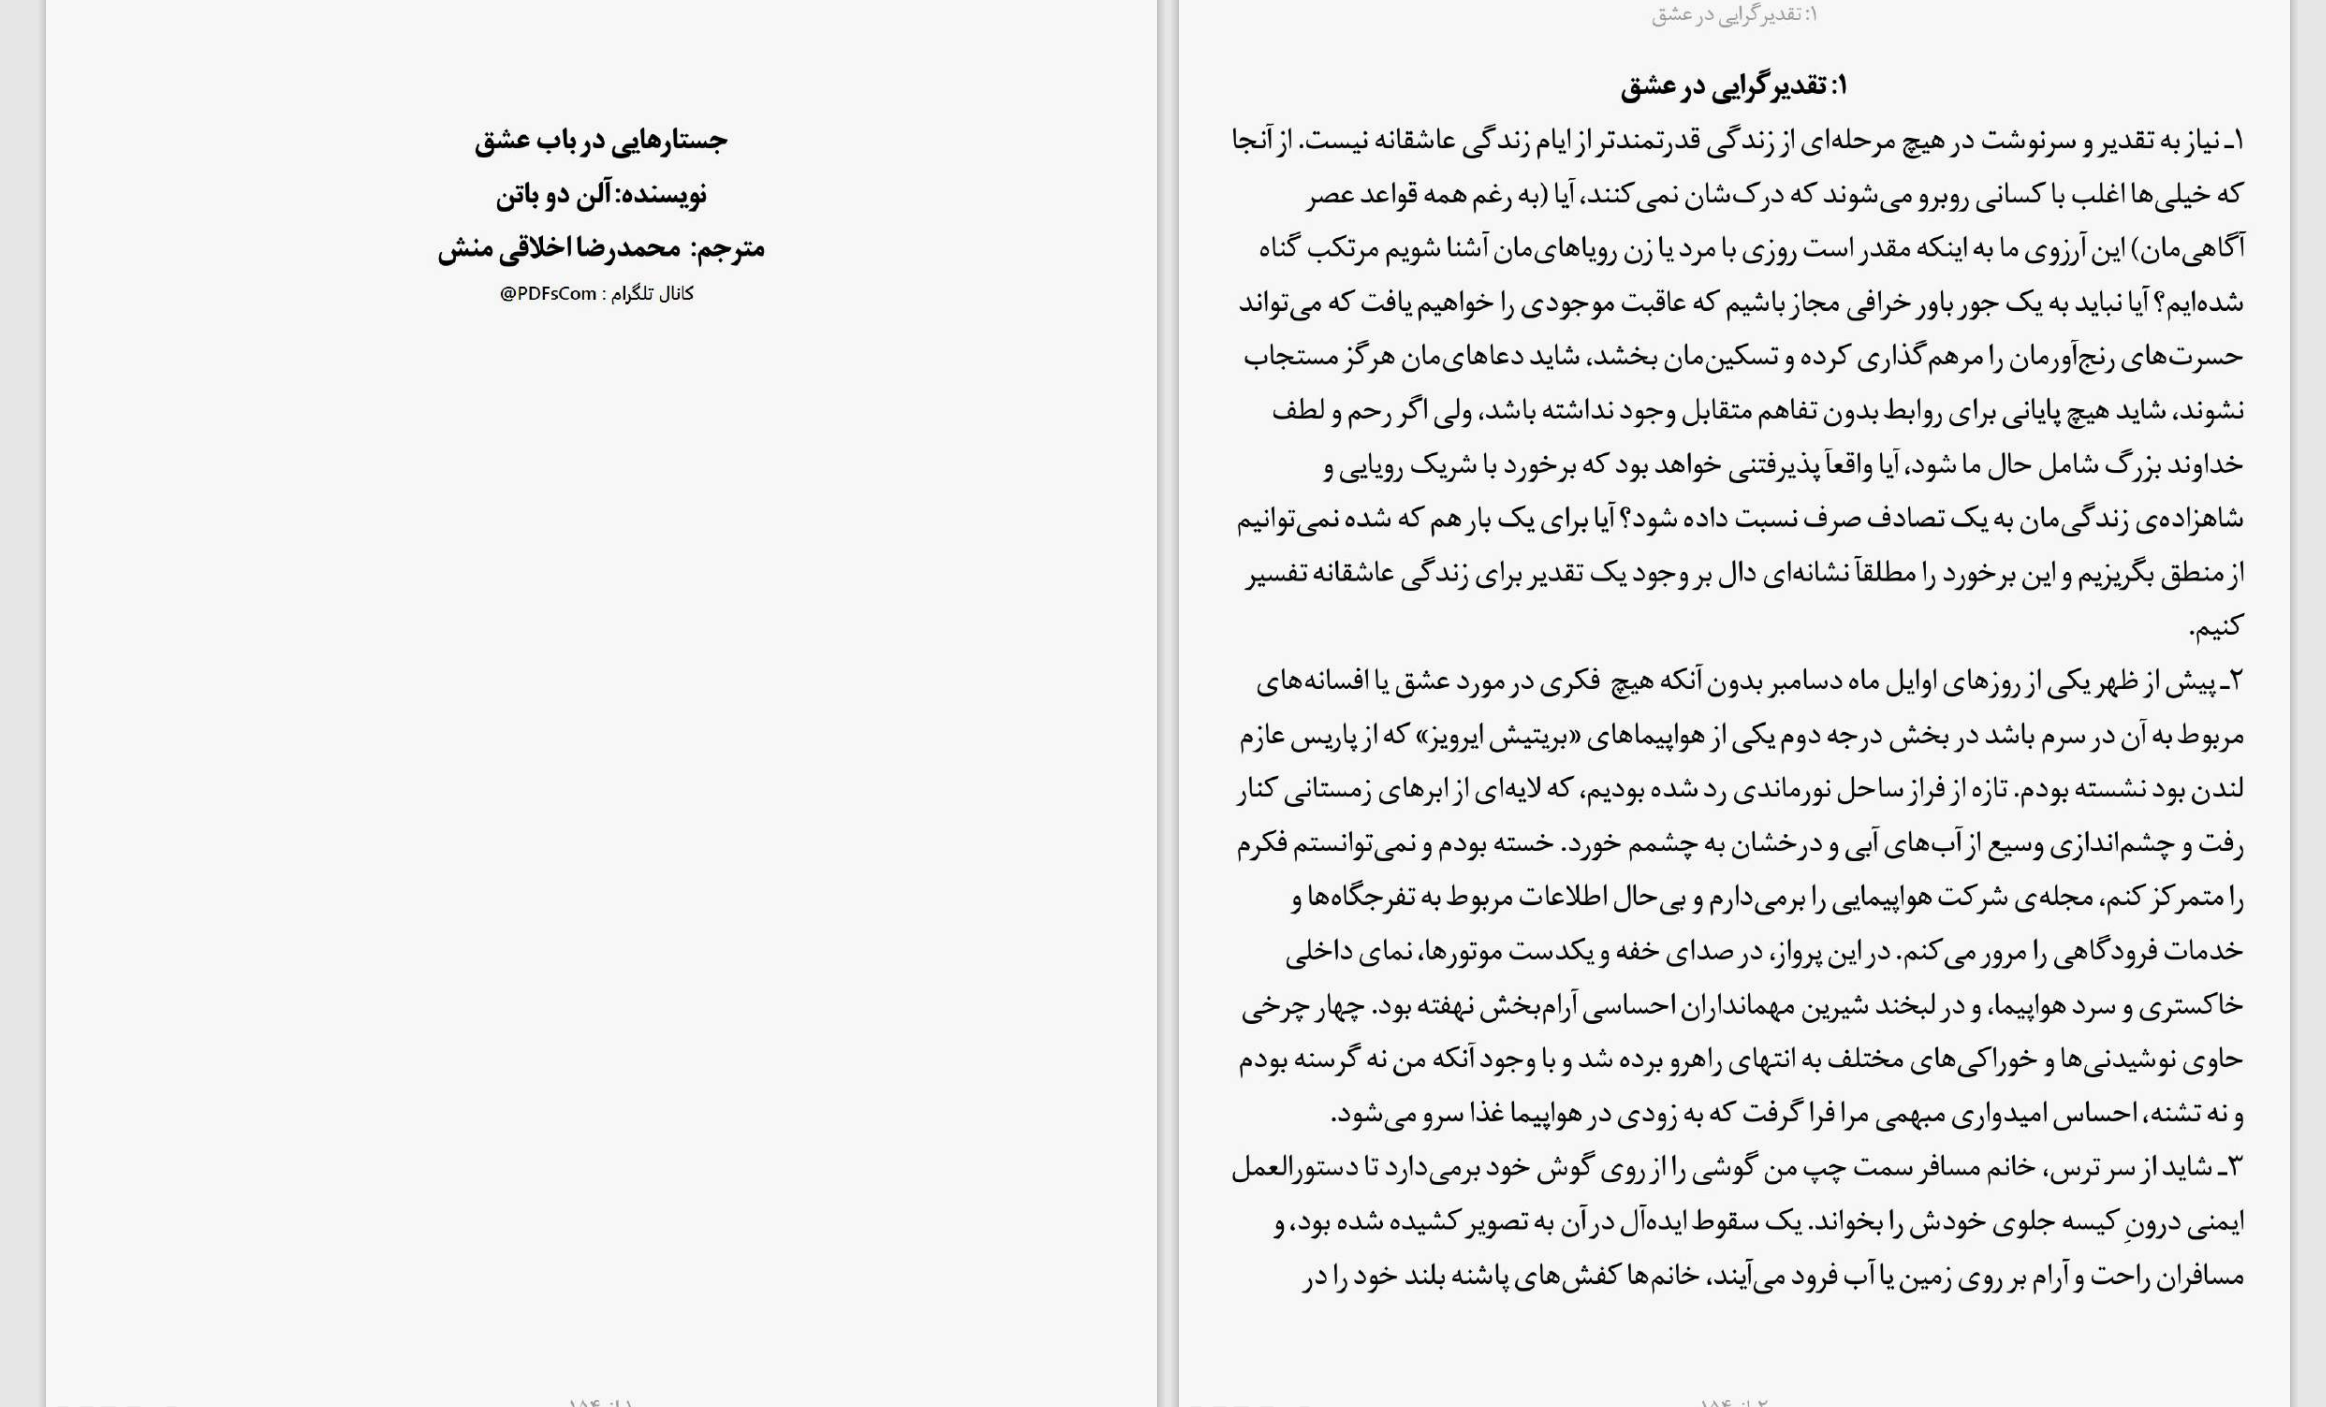 جستارهایی در باب عشق
نویسنده: آلن دو باتن
مترجم: محمدرضا اخلاقی منش
کانال تلگرام : @PDFsCom
۱: تقدیرگرایی در عشق
۱: تقدیرگرایی در عشق
۱ـ نیاز به تقدیر و سرنوشت در هیچ مرحله‌ای از زندگی قدرتمندتر از ایام زندگی عاشقانه نیست. از آنجا
که خیلی‌ها اغلب با کسانی روبرو می‌شوند که درک‌شان نمی‌کنند، آیا (به رغم همه قواعد عصر
آگاهی‌مان) این آرزوی ما به اینکه مقدر است روزی با مرد یا زن رویاهای‌مان آشنا شویم مرتکب گناه
شده‌ایم؟ آیا نباید به یک جور باور خرافی مجاز باشیم که عاقبت موجودی را خواهیم یافت که می‌تواند
حسرت‌های رنج‌آورمان را مرهم‌گذاری کرده و تسکین‌مان بخشد، شاید دعاهای‌مان هرگز مستجاب
نشوند، شاید هیچ پایانی برای روابط بدون تفاهم متقابل وجود نداشته باشد، ولی اگر رحم و لطف
خداوند بزرگ شامل حال ما شود، آیا واقعاً پذیرفتنی خواهد بود که برخورد با شریک رویایی و
شاهزاده‌ی زندگی‌مان به یک تصادف صرف نسبت داده شود؟ آیا برای یک بار هم که شده نمی‌توانیم
از منطق بگریزیم و این برخورد را مطلقاً نشانه‌ای دال بر وجود یک تقدیر برای زندگی عاشقانه تفسیر
کنیم.
۲ـ پیش از ظهر یکی از روزهای اوایل ماه دسامبر بدون آنکه هیچ فکری در مورد عشق یا افسانه‌های
مربوط به آن در سرم باشد در بخش درجه دوم یکی از هواپیماهای «بریتیش ایرویز» که از پاریس عازم
لندن بود نشسته بودم. تازه از فراز ساحل نورماندی رد شده بودیم، که لایه‌ای از ابرهای زمستانی کنار
رفت و چشم‌اندازی وسیع از آب‌های آبی و درخشان به چشمم خورد. خسته بودم و نمی‌توانستم فکرم
را متمرکز کنم، مجله‌ی شرکت هواپیمایی را برمی‌دارم و بی‌حال اطلاعات مربوط به تفرجگاه‌ها و
خدمات فرودگاهی را مرور می‌کنم. در این پرواز، در صدای خفه و یکدست موتورها، نمای داخلی
خاکستری و سرد هواپیما، و در لبخند شیرین مهمانداران احساسی آرام‌بخش نهفته بود. چهار چرخی
حاوی نوشیدنی‌ها و خوراکی‌های مختلف به انتهای راهرو برده شد و با وجود آنکه من نه گرسنه بودم
و نه تشنه، احساس امیدواری مبهمی مرا فرا گرفت که به زودی در هواپیما غذا سرو می‌شود.
۳ـ شاید از سر ترس، خانم مسافر سمت چپ من گوشی را از روی گوش خود برمی‌دارد تا دستورالعمل
ایمنی درونِ کیسه جلوی خودش را بخواند. یک سقوط ایده‌آل در آن به تصویر کشیده شده بود، و
مسافران راحت و آرام بر روی زمین یا آب فرود می‌آیند، خانم‌ها کفش‌های پاشنه بلند خود را در